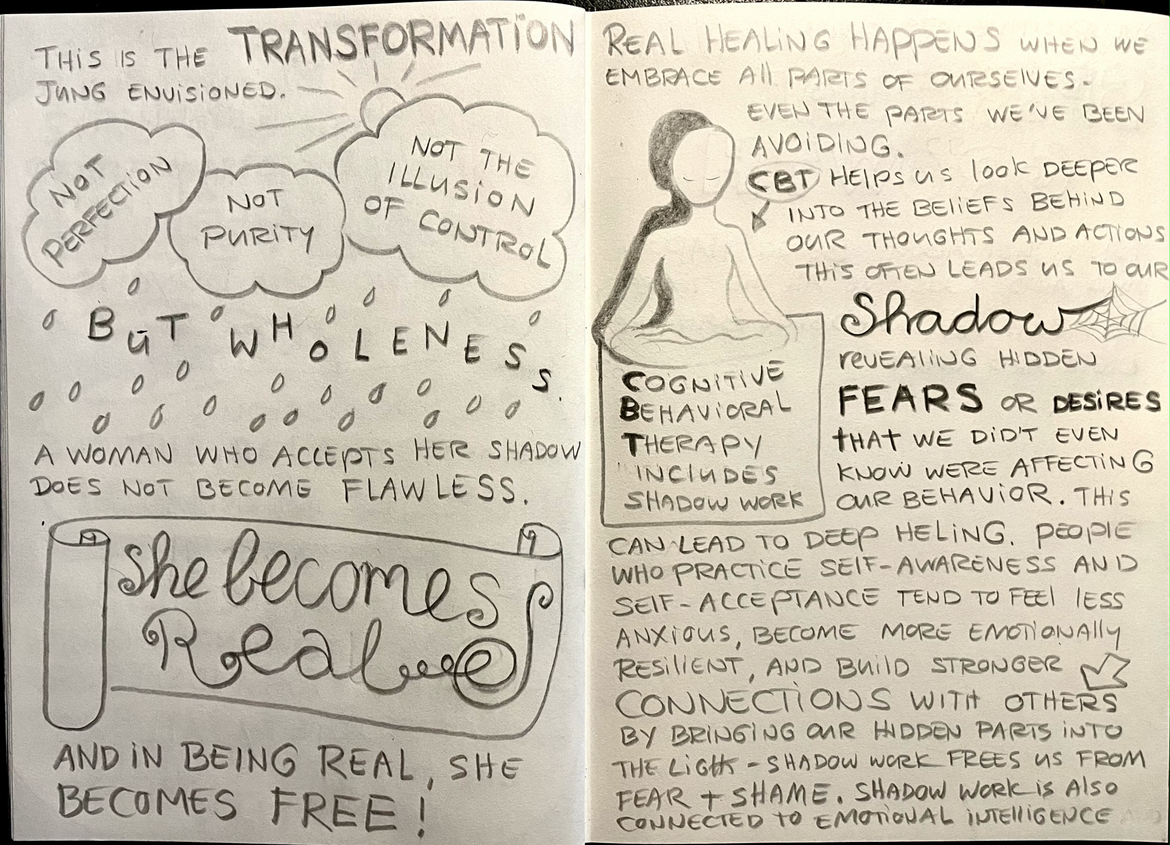 THIS IS THE TRANSFORMATION
JUNG ENVISIONED.
NOT
PERFECTION
NOT
PURITY
NOT THE
ILLUSION
OF CONTROL
BUT WHOLENESS.
A WOMAN WHO ACCEPTS HER SHADOW
DOES NOT BECOME FLAWLESS.
She becomes
Real
AND IN BEING REAL, SHE
BECOMES FREE!
REAL HEALING HAPPENS WHEN WE
EMBRACE All PARTS OF OURSELVES.
EVEN THE PARTS WE'VE BEEN
AVOIDING.
CBT HELPS US look DEEPER
INTO THE BELIEFS BEHIND
OUR THOUGHTS AND ACTIONS
THIS OFTEN LEADS US TO OUR
Shadow
REVEALING HIDDEN
FEARS OR DESIRES
THAT WE DIDN'T EVEN
KNOW WERE AFFECTING
OUR BEHAVIOR. THIS
COGNITIVE
BEHAVIORAL
THERAPY
INCLUDES
SHADOW WORK
CAN LEAD TO DEEP HELING. PEOPLE
WHO PRACTICE SELF-AWARENESS AND
SELF-ACCEPTANCE TEND TO FEEL LESS
ANXIOUS, BECOME MORE EMOTIONALLY
RESILIENT, AND BUILD STRONGER
CONNECTIONS WITH OTHERS
BY BRINGING OUR HIDDEN PARTS INTO
THE LIGHT - SHADOW WORK FREES US FROM
FEAR + SHAME. SHADOW WORK IS ALSO
CONNECTED TO EMOTIONAL INTELLIGENCE